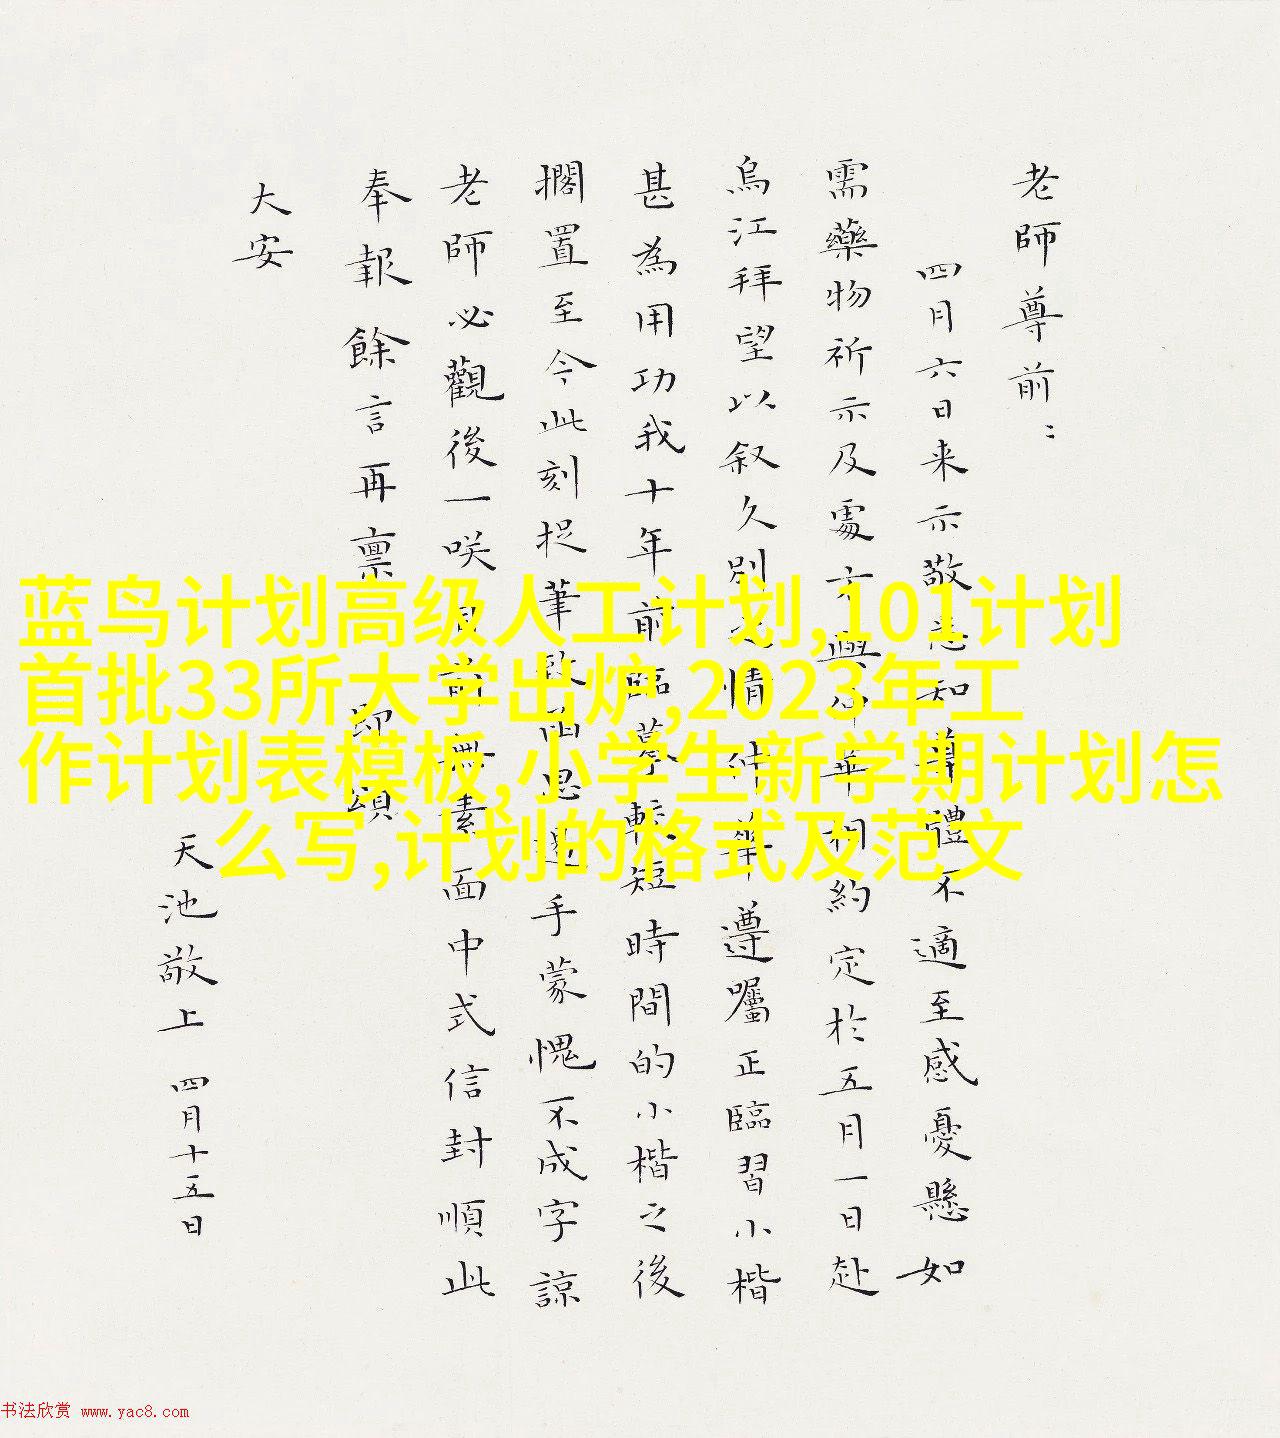 老師尊前：
四月六日来示敬悉知尊體不適至感憂懸如
需藥物祈示及處方與仲華相約定於五月一日赴
烏江拜望以叙久別之情仲華遵囑正臨習小楷
甚為用功我十年前臨摹較短時間的小楷之後
擱置至今此刻捉筆致函思遲手蒙愧不成字諒
老師必觀後一咲目前無素面中式信封順此
奉報餘言再禀即頌
大安
天池敬上 四月十五日
蓝鸟计划高级人工计划,101计划
首批33所大学出炉,2023年工
作计划表模板,小学生新学期计划怎
么写,计划的格式及范文
书法欣赏 www.yac8.com